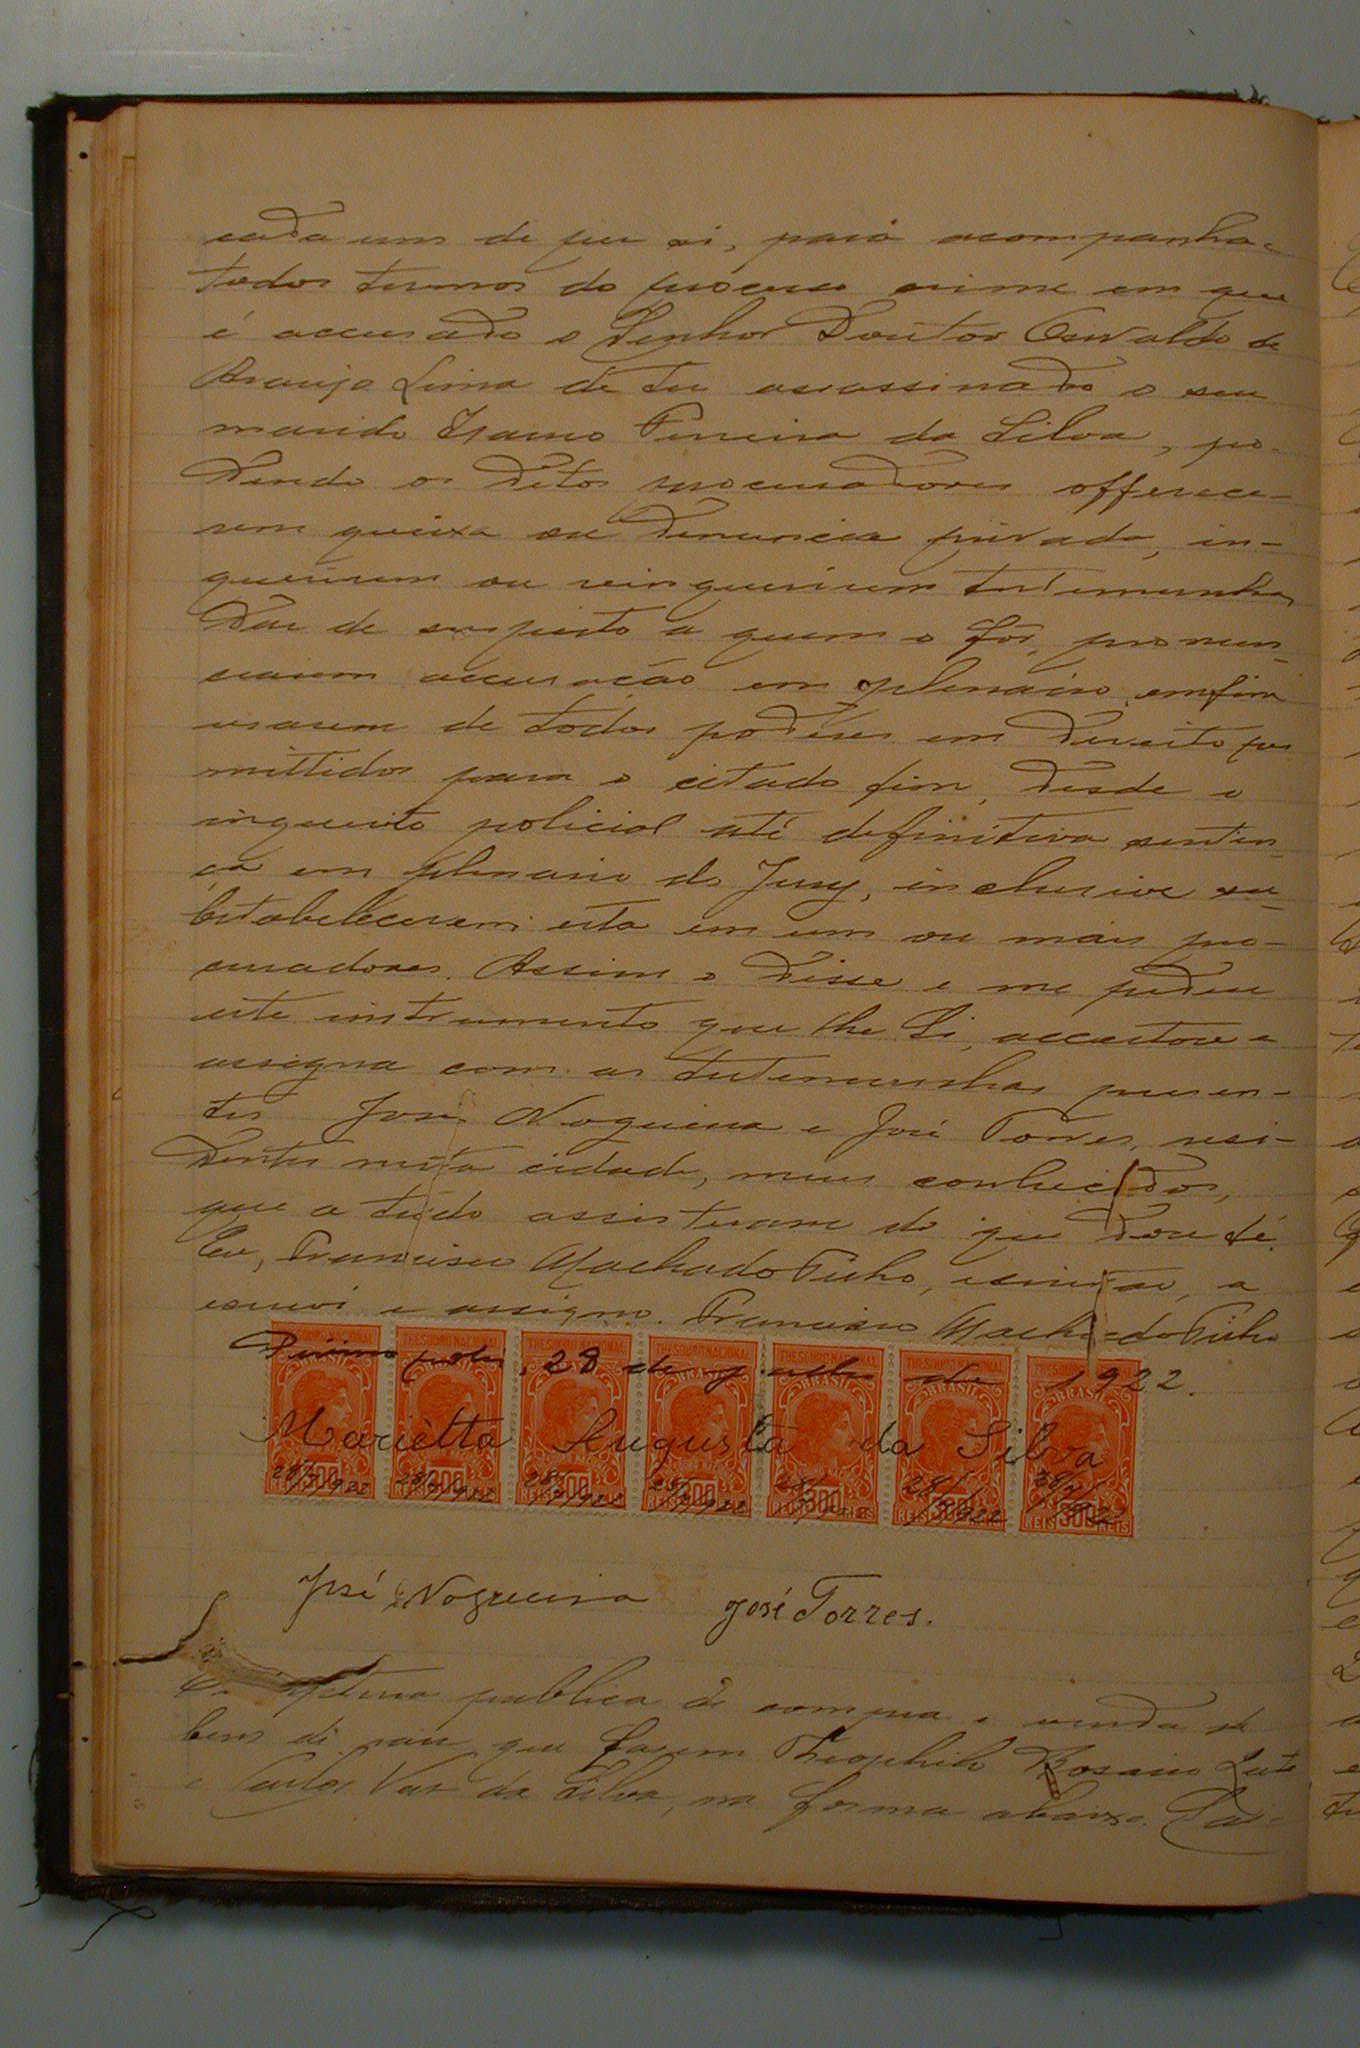 cada um de per si, para acompanhar
todos termos do processo crime em que
é accusado o Senhor Doutor Oswaldo de
Araujo Lima de ter assassinado o seu
marido Pereira da Silva, po-
dendo os ditos procuradores offerece-
rem queixa ou denuncia privada, in-
querirem ou reinquerirem testemunhas
dar de suspeito a quem o fôr, pronun-
ciarem accusação em plenario, emfim
usarem de todos poderes em direito per
mittidos para o citado fim, desde o
inquerito policial até definitiva senten-
ça em plenario do Jury, inclusive su-
bstabelecerem esta em um ou mais pro-
curadores. Assim o disse e me pediu
este instrumento que lhe li, acceitou e
assigna com as testemunhas presen-
tes José Nogueira e José Torres, resi-
dentes nesta cidade, meus conhecidos,
que a tudo assisteram do que dou fé.
Eu, Francisco Machado Filho, escrivão, a
escrevi e assigno. Francisco Machado Filho
28 de de 1922.
THESOURO NACIONAL THESOURO NACIONAL THESOURO NACIONAL THESOURO NACIONAL THESOURO NACIONAL THESOURO NACIONAL THESOURO NACIONAL
BRASIL BRASIL BRASIL BRASIL
Mariètta Augusta da Silva
300 REIS 300 REIS 300 REIS 300 REIS 300 REIS 300 REIS 300 REIS
José Nogueira José Torres.
publica de compra e venda de
bens de raiz que fazem Theophilo Rosario
e Carlos Vaz da Silva, na forma abaixo.